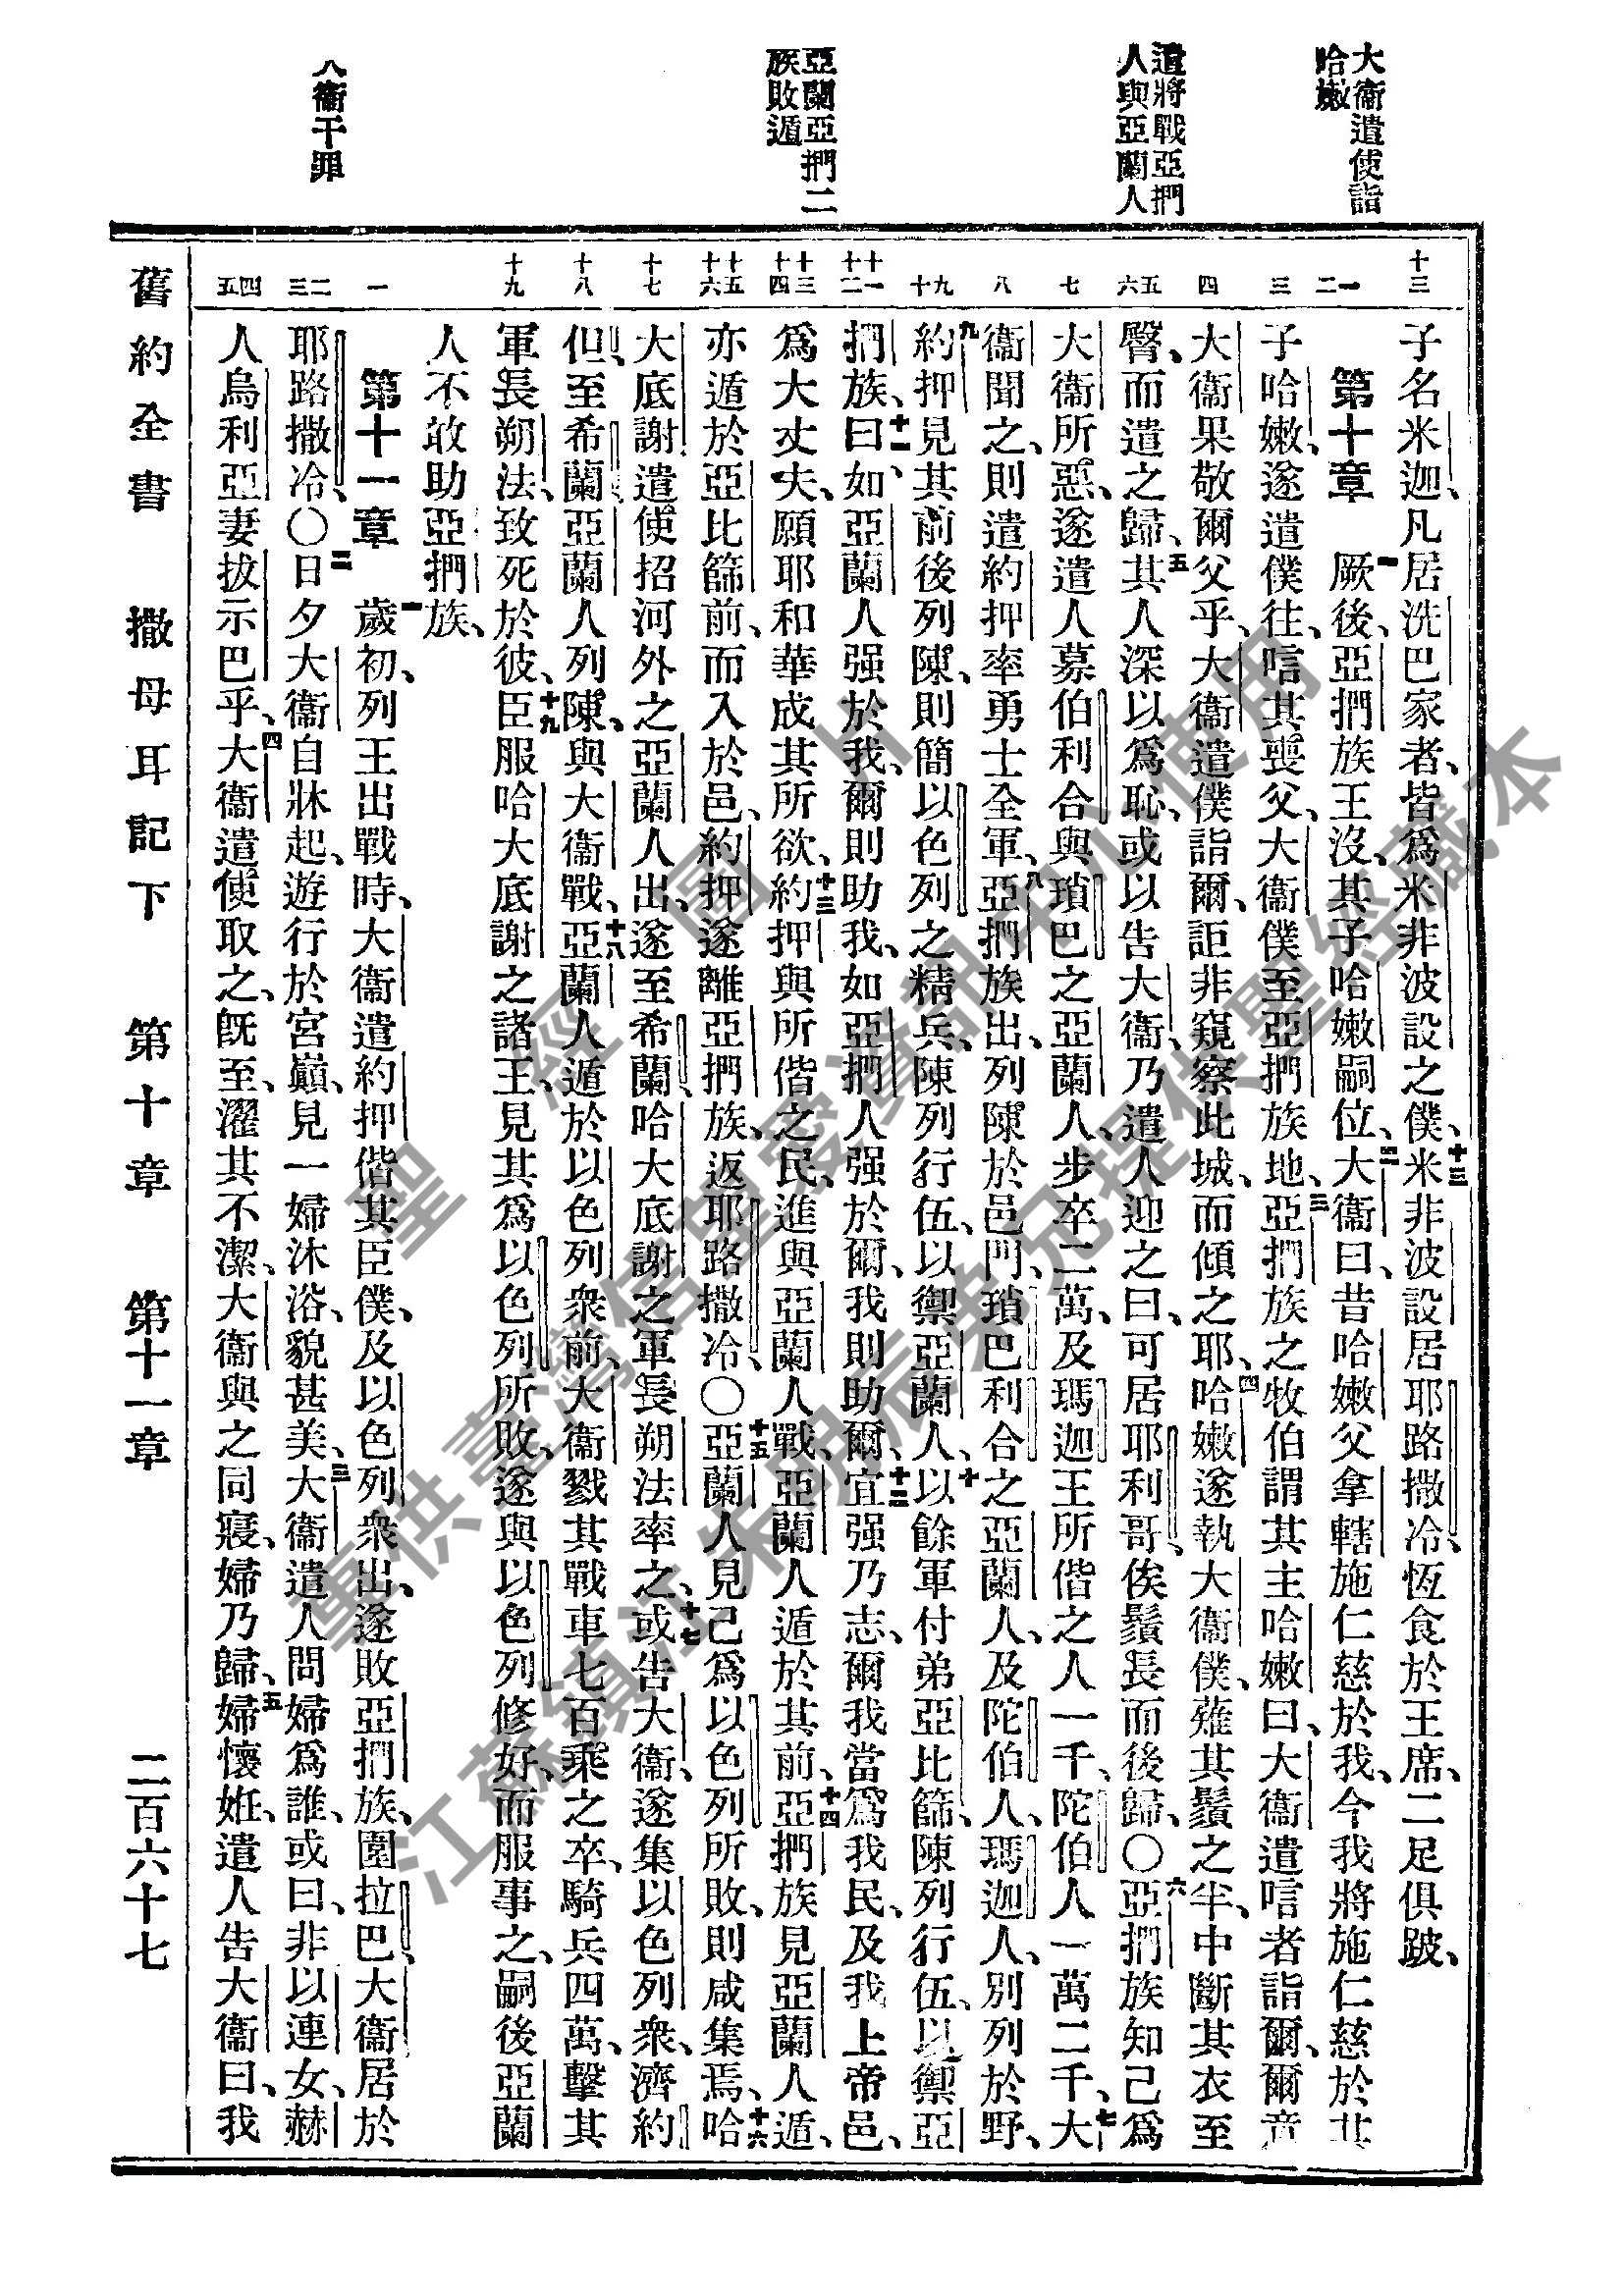 大衞遣使詣
哈嫩
遣將戰亞捫
人與亞蘭人
亞蘭亞捫二
族敗遁
大衞干罪
十三
一二
三
四
五六
七
八
九十
十一十二
十三十四
十五十六
十七
十八
十九
一
二三
四五
子名米迦、凡居洗巴家者、皆爲米非波設之僕、十三米非波設居耶路撒冷、恆食於王席、二足俱跛、
第十章 一厥後、亞捫族王沒、其子哈嫩嗣位、二大衞曰、昔哈嫩父拿轄施仁慈於我、今我將施仁慈於其
子哈嫩、遂遣僕往、唁其喪父、大衞僕至亞捫族地、三亞捫族之牧伯謂其主哈嫩曰、大衞遣唁者詣爾、爾意
大衞果敬爾父乎、大衞遣僕詣爾、詎非窺察此城、而傾之耶、四哈嫩遂執大衞僕、薙其鬚之半、中斷其衣至
臀、而遣之歸、五其人深以爲恥、或以告大衞、乃遣人迎之曰、可居耶利哥、俟鬚長而後歸、〇六亞捫族知己爲
大衞所惡、遂遣人募伯利合與瑣巴之亞蘭人、步卒二萬、及瑪迦王所偕之人一千、陀伯人一萬二千、七大
衞聞之、則遣約押率勇士全軍、八亞捫族出、列陳於邑門、瑣巴利合之亞蘭人、及陀伯人、瑪迦人、別列於野、
九約押見其前後列陳、則簡以色列之精兵、陳列行伍、以禦亞蘭人、十以餘軍付弟亞比篩、陳列行伍、以禦亞
捫族、十一曰、如亞蘭人强於我、爾則助我、如亞捫人强於爾、我則助爾、十二宜强乃志、爾我當爲我民、及我上帝邑、
爲大丈夫、願耶和華成其所欲、十三約押與所偕之民、進與亞蘭人戰、亞蘭人遁於其前、十四亞捫族見亞蘭人遁、
亦遁於亞比篩前、而入於邑、約押遂離亞捫族、返耶路撒冷、〇十五亞蘭人見己爲以色列所敗、則咸集焉、十六哈
大底謝遣使招河外之亞蘭人出、遂至希蘭、哈大底謝之軍長朔法率之、十七或告大衞、遂集以色列衆、濟約
但、至希蘭、亞蘭人列陳、與大衞戰、十八亞蘭人遁於以色列衆前、大衞戮其戰車七百乘之卒、騎兵四萬、擊其
軍長朔法、致死於彼、十九臣服哈大底謝之諸王、見其爲以色列所敗、遂與以色列修好、而服事之、嗣後亞蘭
人不敢助亞捫族、
第十一章 一歲初、列王出戰時、大衞遣約押偕其臣僕、及以色列衆出、遂敗亞捫族、圍拉巴、大衞居於
耶路撒冷、〇二日夕大衞自牀起、遊行於宮巔、見一婦沐浴、貌甚美、三大衞遣人問婦爲誰、或曰、非以連女、赫
人烏利亞妻拔示巴乎、四大衞遣使取之、旣至、濯其不潔、大衞與之同寢、婦乃歸、五婦懷姙、遣人告大衞曰、我
舊約全書 撒母耳記下 第十章 第十一章 二百六十七
聖經圖片
專供臺灣信望愛資訊中心使用
江蘇鎮江朱明辰弟兄提供聖經藏本